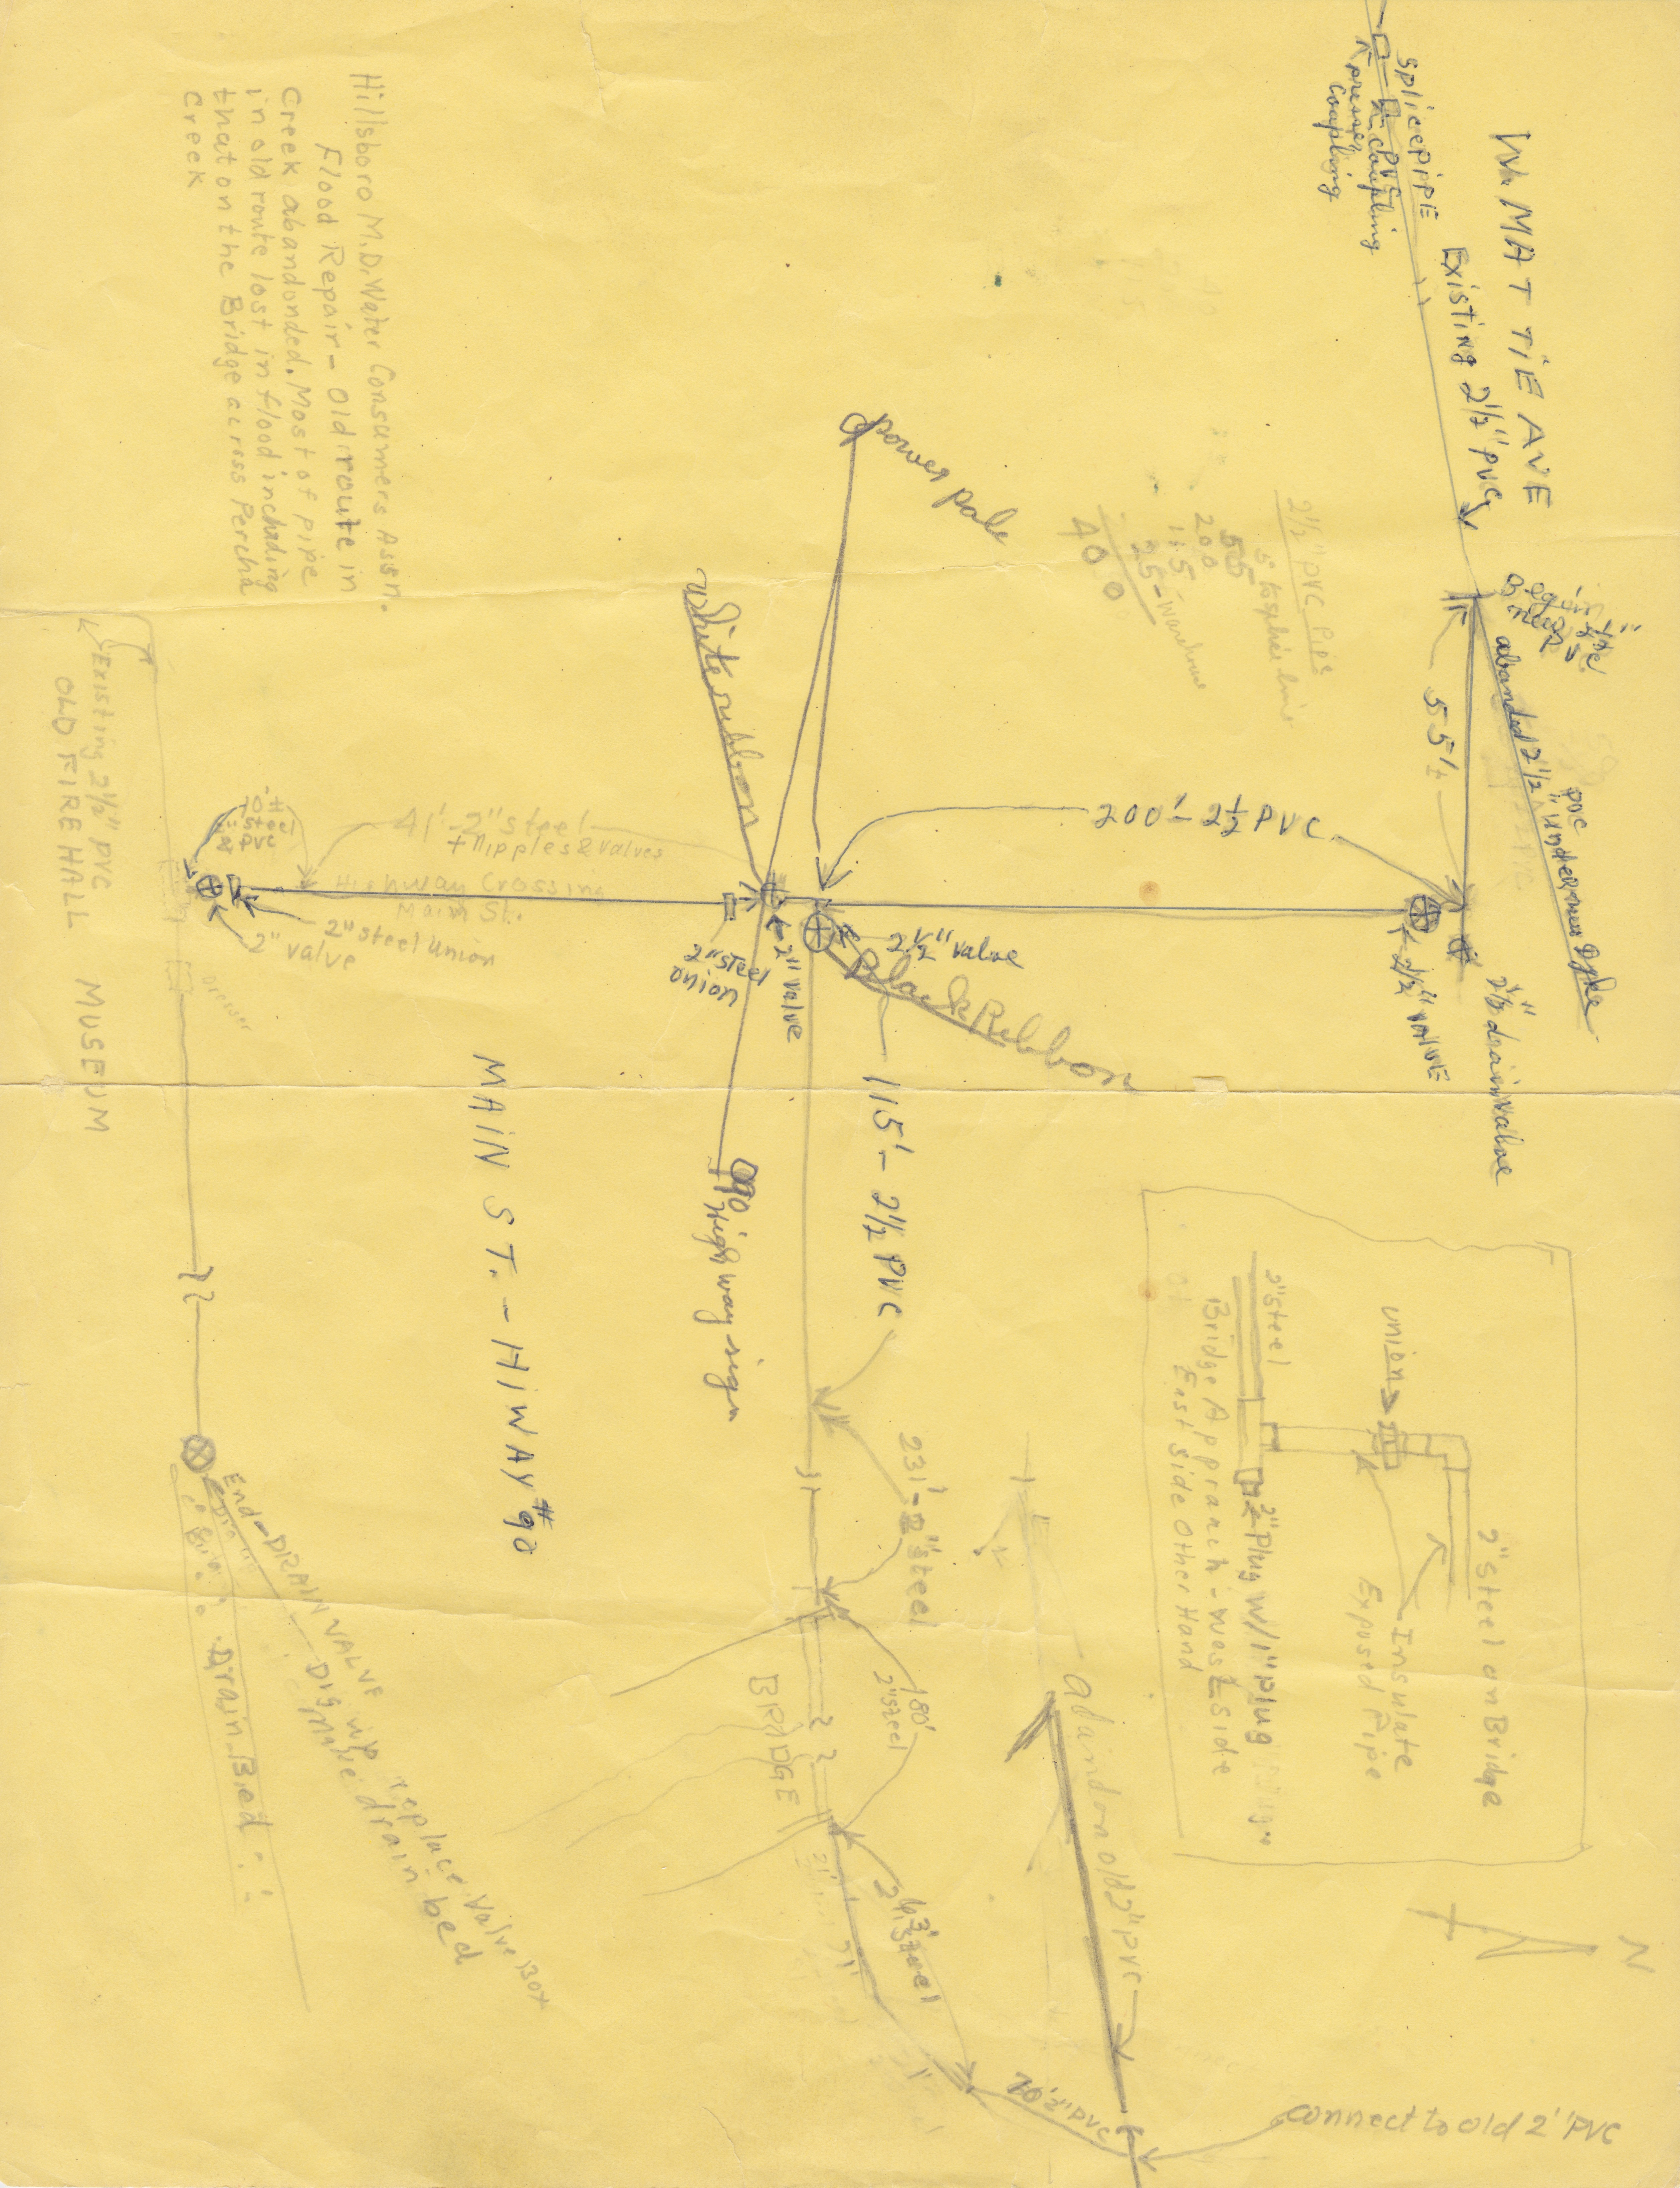 W. MATTIE AVE
splice pipE
coupling
coupling
Existing 2½" PVC
Begin
abanded 2½" PVC
under new Dyke
55'±
2½" drain valve
2½" VALVE
200' - 2½ PVC
2½" PVC Pipe
55
200
115
25 -
400
power pole
white ribbon
Black Ribbon
2½" valve
2" valve
2" steel
union
90
Highway sign
115' - 2½" PVC
MAIN ST. - HIWAY #90
Hillsboro M.D. Water Consumers Assn.
Flood Repair - Old route in
Creek abandonded. Most of pipe
in old route lost in flood inchading
that on the Bridge across Percha
Creek
41' - 2" steel
+ nipples & valves
Highway Crossing
Main St.
10'±
2" steel
PVC
2" steel union
2" valve
Existing 2½" PVC
OLD FIRE HALL MUSEUM
Dresser
End - DRAIN VALVE
Dig up replace Valve Box
Make drain bed
Drain Bed
231' - 2" steel
180'
2" steel
BRIDGE
2" steel
70' 2" PVC
abandon old 2" PVC
connect to old 2" PVC
N
2" steel on Bridge
Insulate
Exposed Pipe
union
2" steel
2" Plug W/1" Plug
Bridge Appranch - West Side
East Side Other Hand